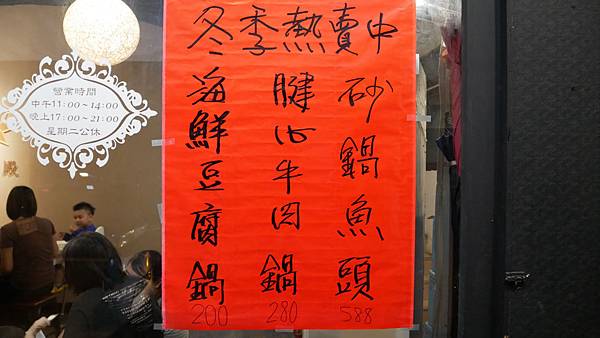 冬季熱賣中
砂鍋魚頭
588
腱心牛肉鍋
280
海鮮豆腐鍋
200
營業時間
中午11:00~14:00
晚上17:00~21:00
星期二公休
殿